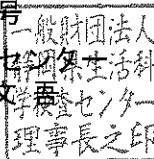 号
センター
文 吾
一般財団法人
静岡県生活科
学検査センター
理事長之印